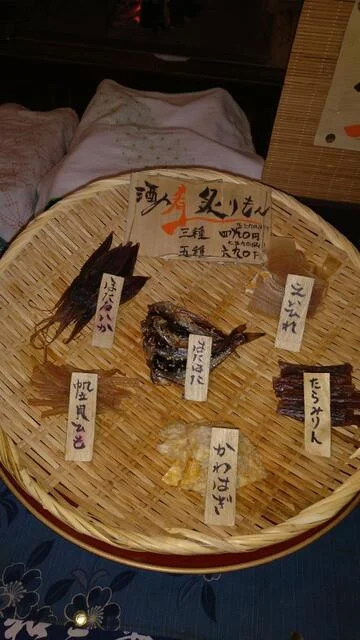 酒肴 炙りもん
三種 四九〇円
五種 六九〇円
ほたるいか
えいひれ
はたはた
帆立貝ひも
たらみりん
かわはぎ